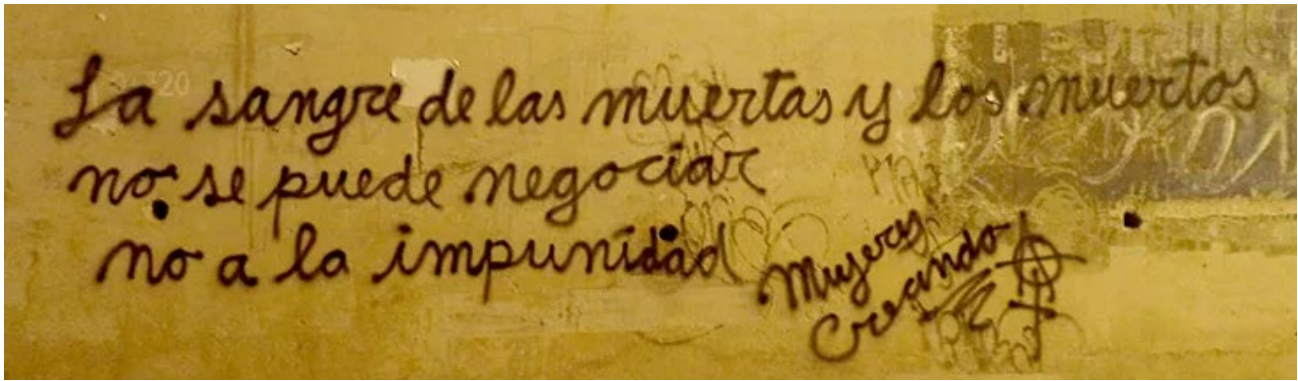 La sangre de las muertas y los muertos
no se puede negociar
no a la impunidad
Mujeres
Creando
320